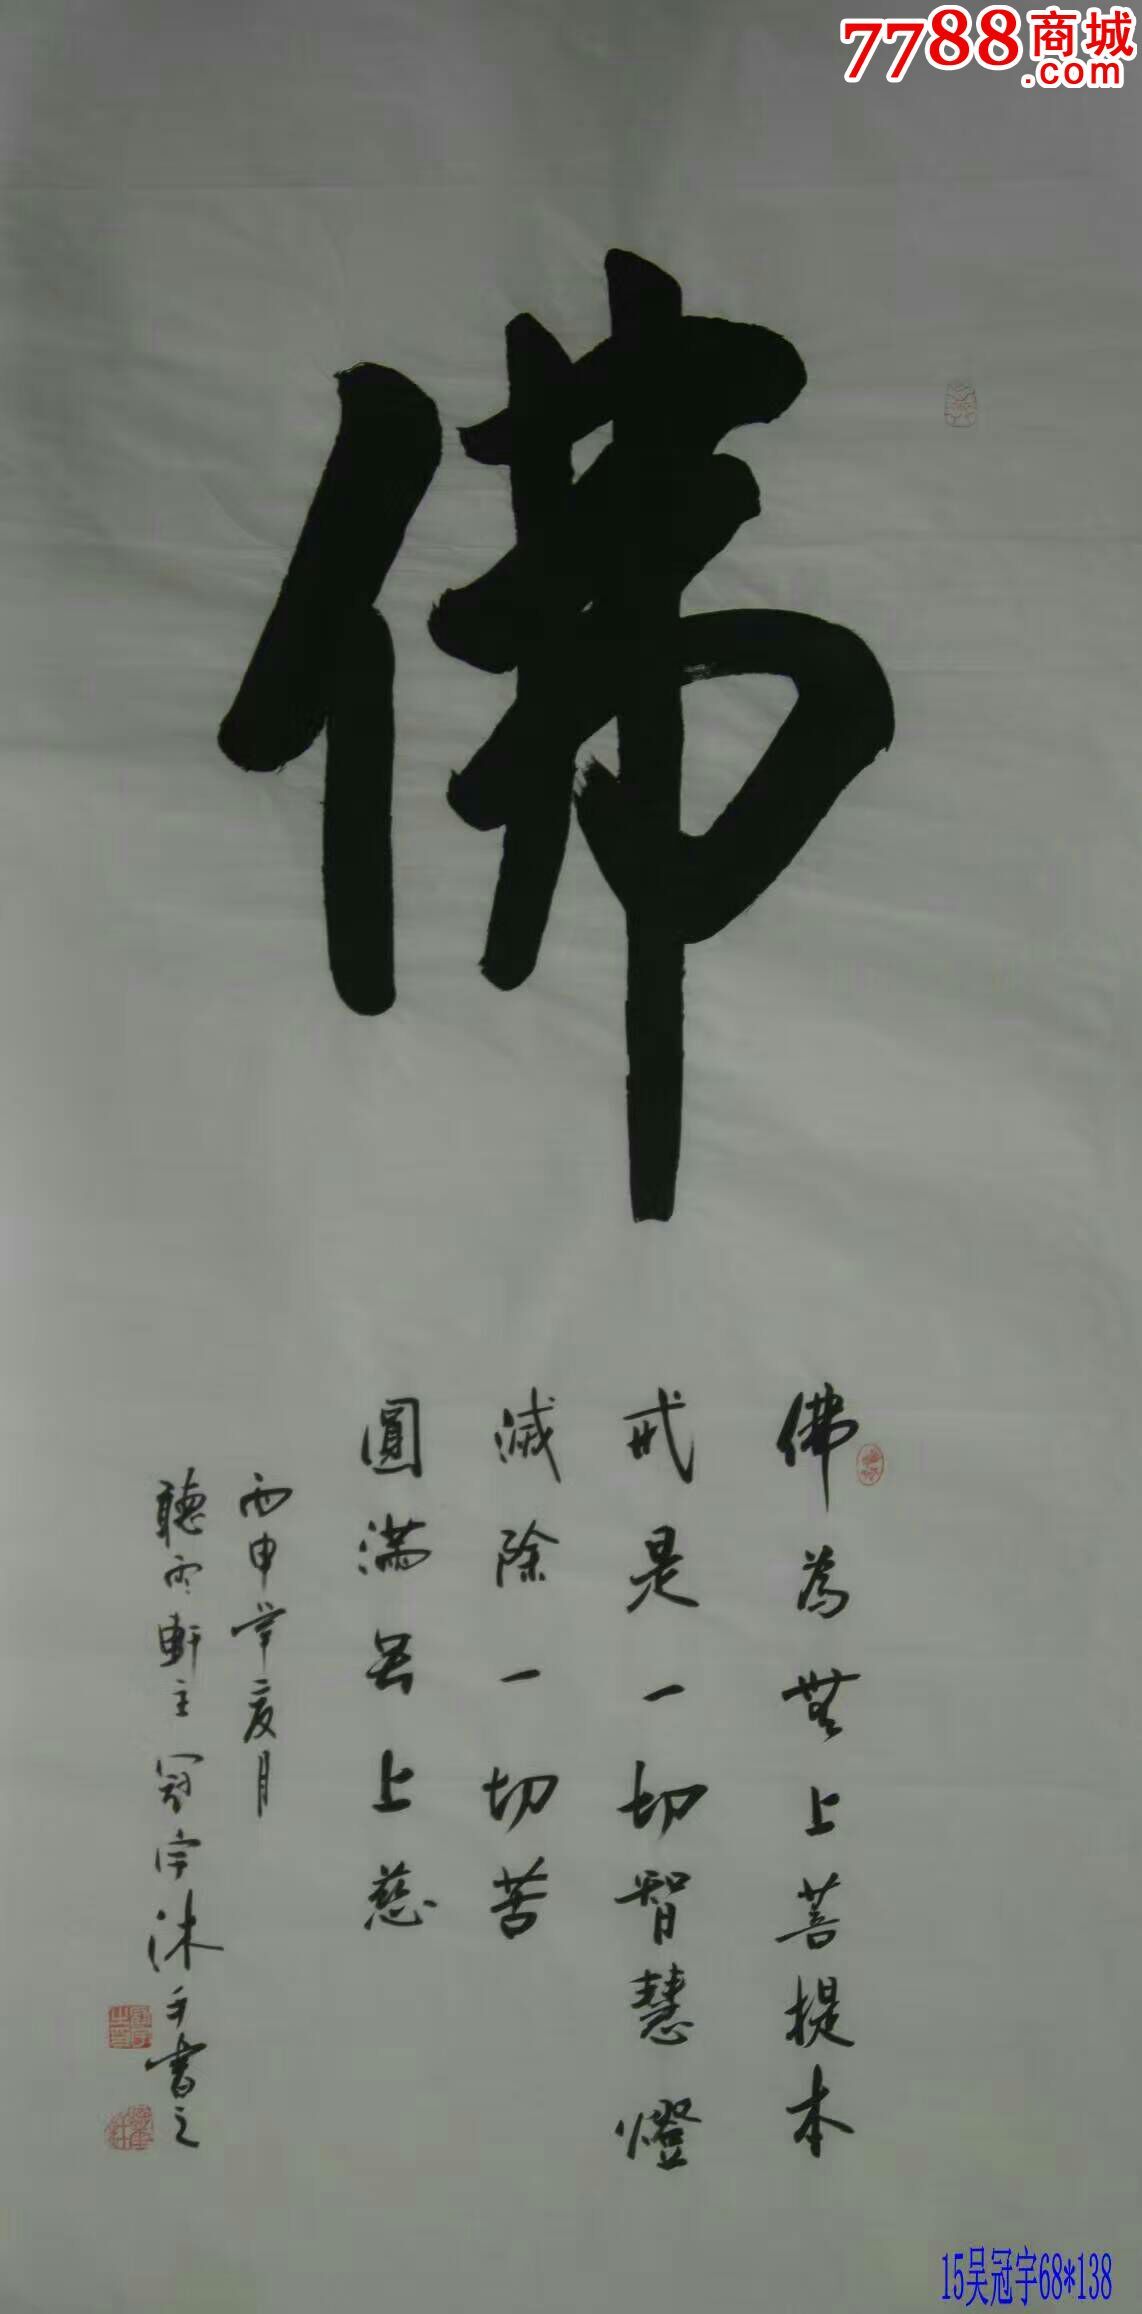 7788商城
.com
佛
佛為無上菩提本
戒是一切智慧燈
滅除一切苦
圓滿無上慈
丙申年夏月
聽雨軒主冠宇沐手書之
15吴冠宇68*138